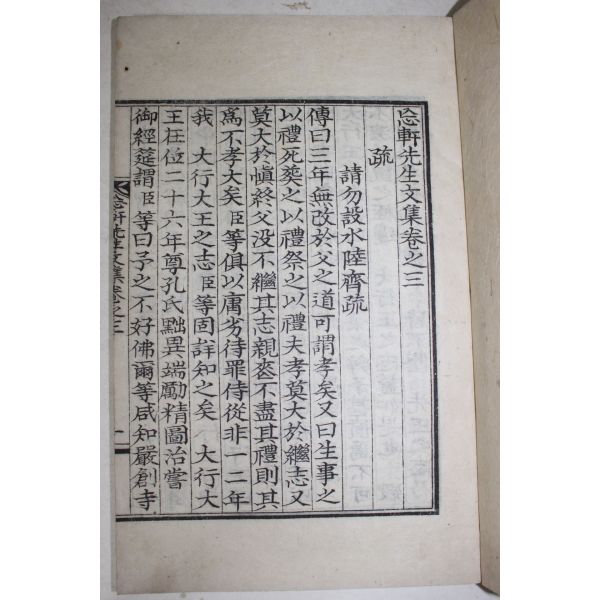 忘軒先生文集卷之三
疏
請勿設水陸齊疏
傳曰三年無改於父之道可謂孝矣又曰生事之
以禮死葬之以禮祭之以禮夫孝莫大於繼志又
莫大於愼終父没不繼其志親喪不盡其禮則其
爲不孝大矣臣等俱以庸劣待罪侍從非一二年
我 大行大王之志臣等固詳知之矣 大行大
王在位二十六年尊孔氏黜異端勵精圖治嘗
御經筵謂臣等曰予之不好佛爾等咸知嚴創寺
忘軒先生文集卷之三
一